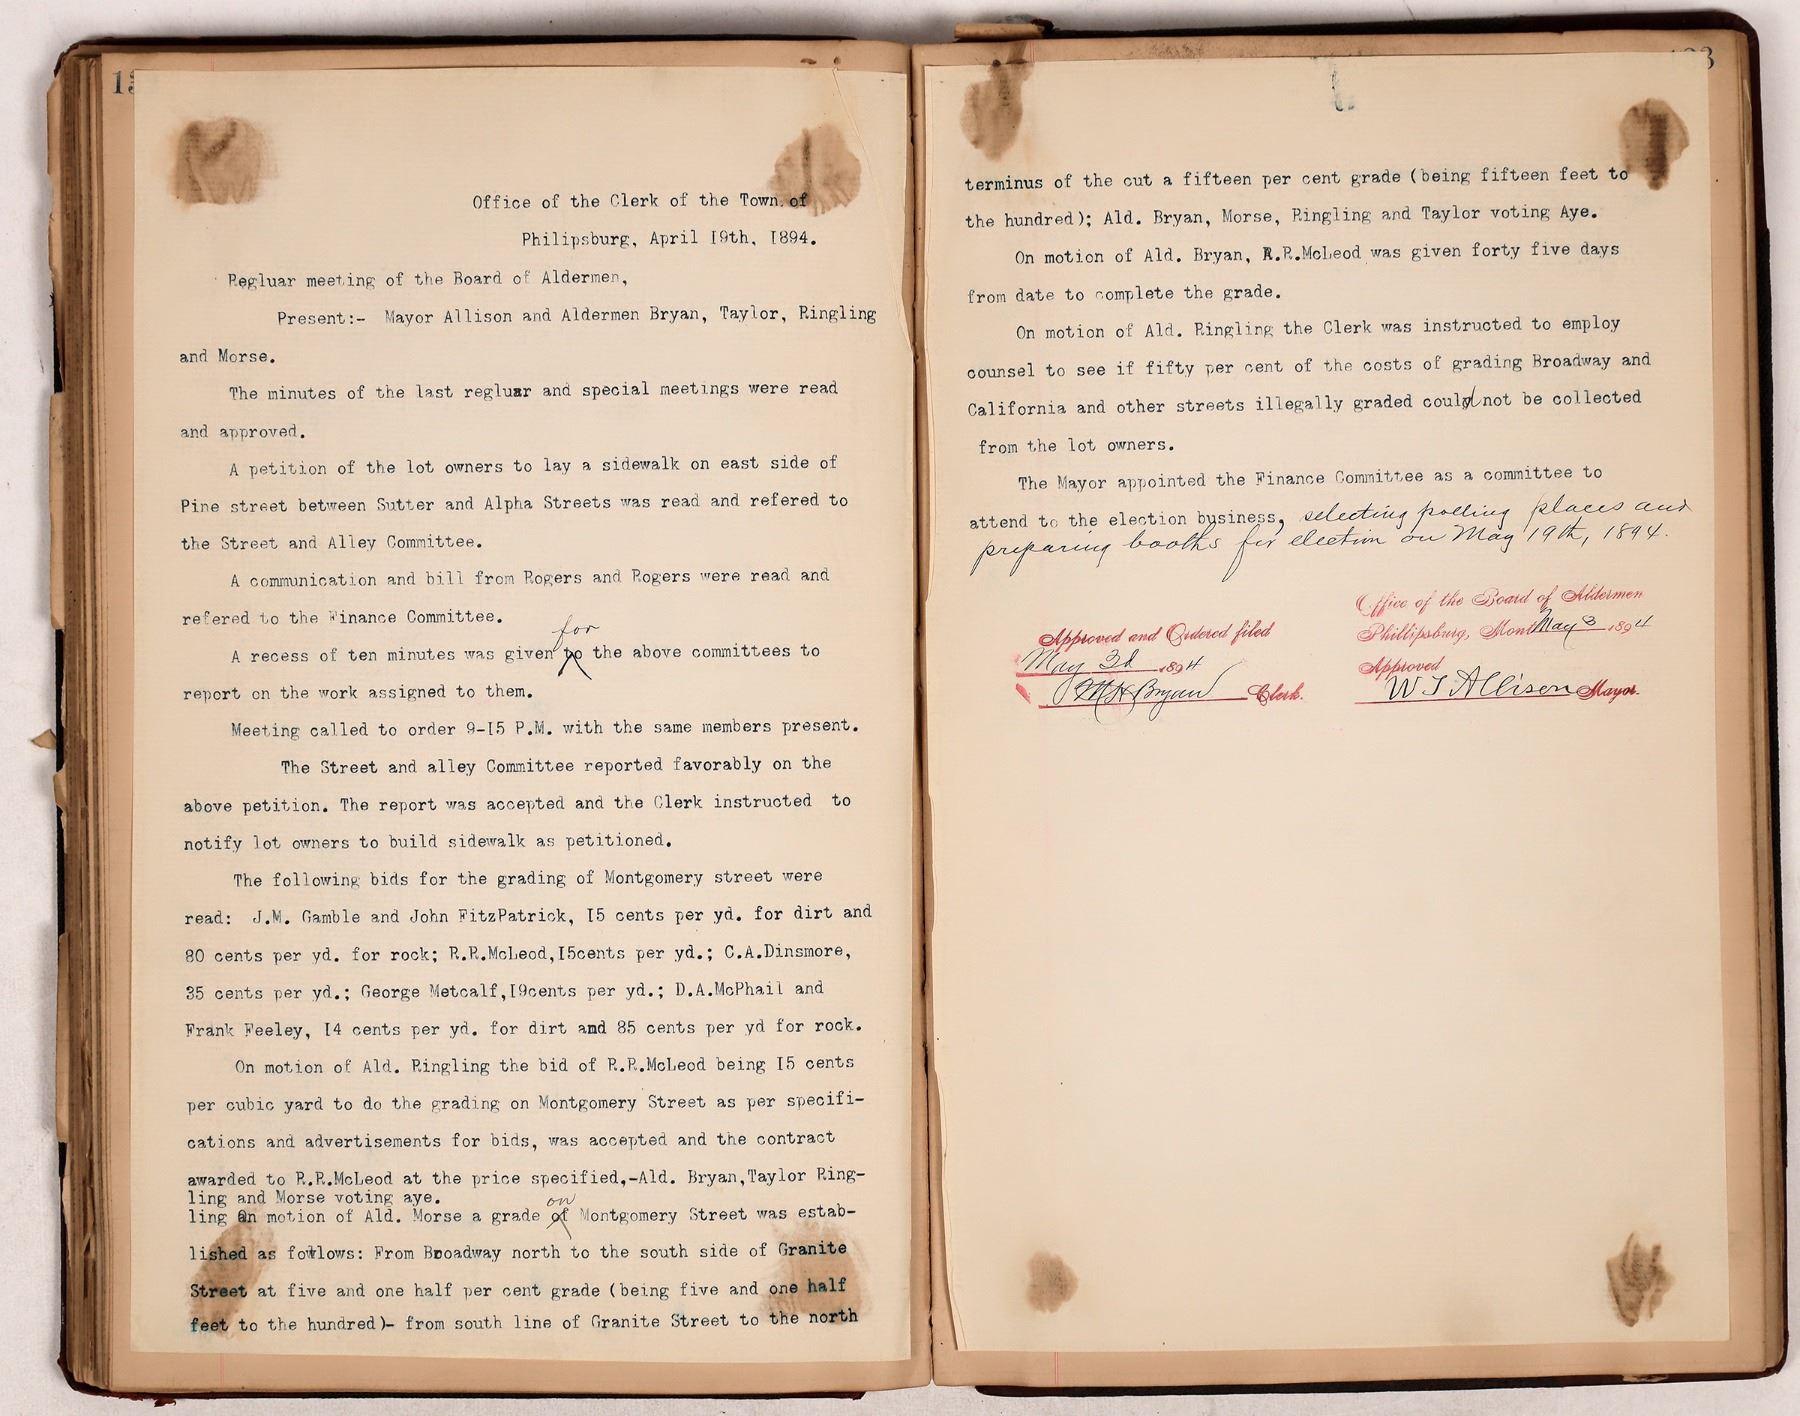 Office of the Clerk of the Town of
Philipsburg, April 19th, 1894.
Regluar meeting of the Board of Aldermen,
Present:- Mayor Allison and Aldermen Bryan, Taylor, Ringling
and Morse.
The minutes of the last regluar and special meetings were read
and approved.
A petition of the lot owners to lay a sidewalk on east side of
Pine street between Sutter and Alpha Streets was read and refered to
the Street and Alley Committee.
A communication and bill from Rogers and Rogers were read and
refered to the Finance Committee.
for
A recess of ten minutes was given to the above committees to
report on the work assigned to them.
Meeting called to order 9-15 P.M. with the same members present.
The Street and alley Committee reported favorably on the
above petition. The report was accepted and the Clerk instructed to
notify lot owners to build sidewalk as petitioned.
The following bids for the grading of Montgomery street were
read: J.M. Gamble and John FitzPatrick, 15 cents per yd. for dirt and
80 cents per yd. for rock; R.R.McLeod,15cents per yd.; C.A.Dinsmore,
35 cents per yd.; George Metcalf,19cents per yd.; D.A.McPhail and
Frank Feeley, 14 cents per yd. for dirt and 85 cents per yd for rock.
On motion of Ald. Ringling the bid of R.R.McLeod being 15 cents
per cubic yard to do the grading on Montgomery Street as per specifi-
cations and advertisements for bids, was accepted and the contract
awarded to R.R.McLeod at the price specified,-Ald. Bryan,Taylor Ring-
ling and Morse voting aye.
on
ling On motion of Ald. Morse a grade of Montgomery Street was estab-
lished as follows: From Broadway north to the south side of Granite
Street at five and one half per cent grade (being five and one half
feet to the hundred)- from south line of Granite Street to the north
terminus of the cut a fifteen per cent grade (being fifteen feet to
the hundred); Ald. Bryan, Morse, Ringling and Taylor voting Aye.
On motion of Ald. Bryan, R.R.McLeod was given forty five days
from date to complete the grade.
On motion of Ald. Ringling the Clerk was instructed to employ
counsel to see if fifty per cent of the costs of grading Broadway and
California and other streets illegally graded could not be collected
from the lot owners.
The Mayor appointed the Finance Committee as a committee to
attend to the election business, selecting polling places and
preparing booths for election on May 19th, 1894.
Approved and Ordered filed
May 3d 1894
M H Bryan Clerk.
Office of the Board of Aldermen
Phillipsburg, Mont May 3 1894
Approved
W J Allison Mayor.